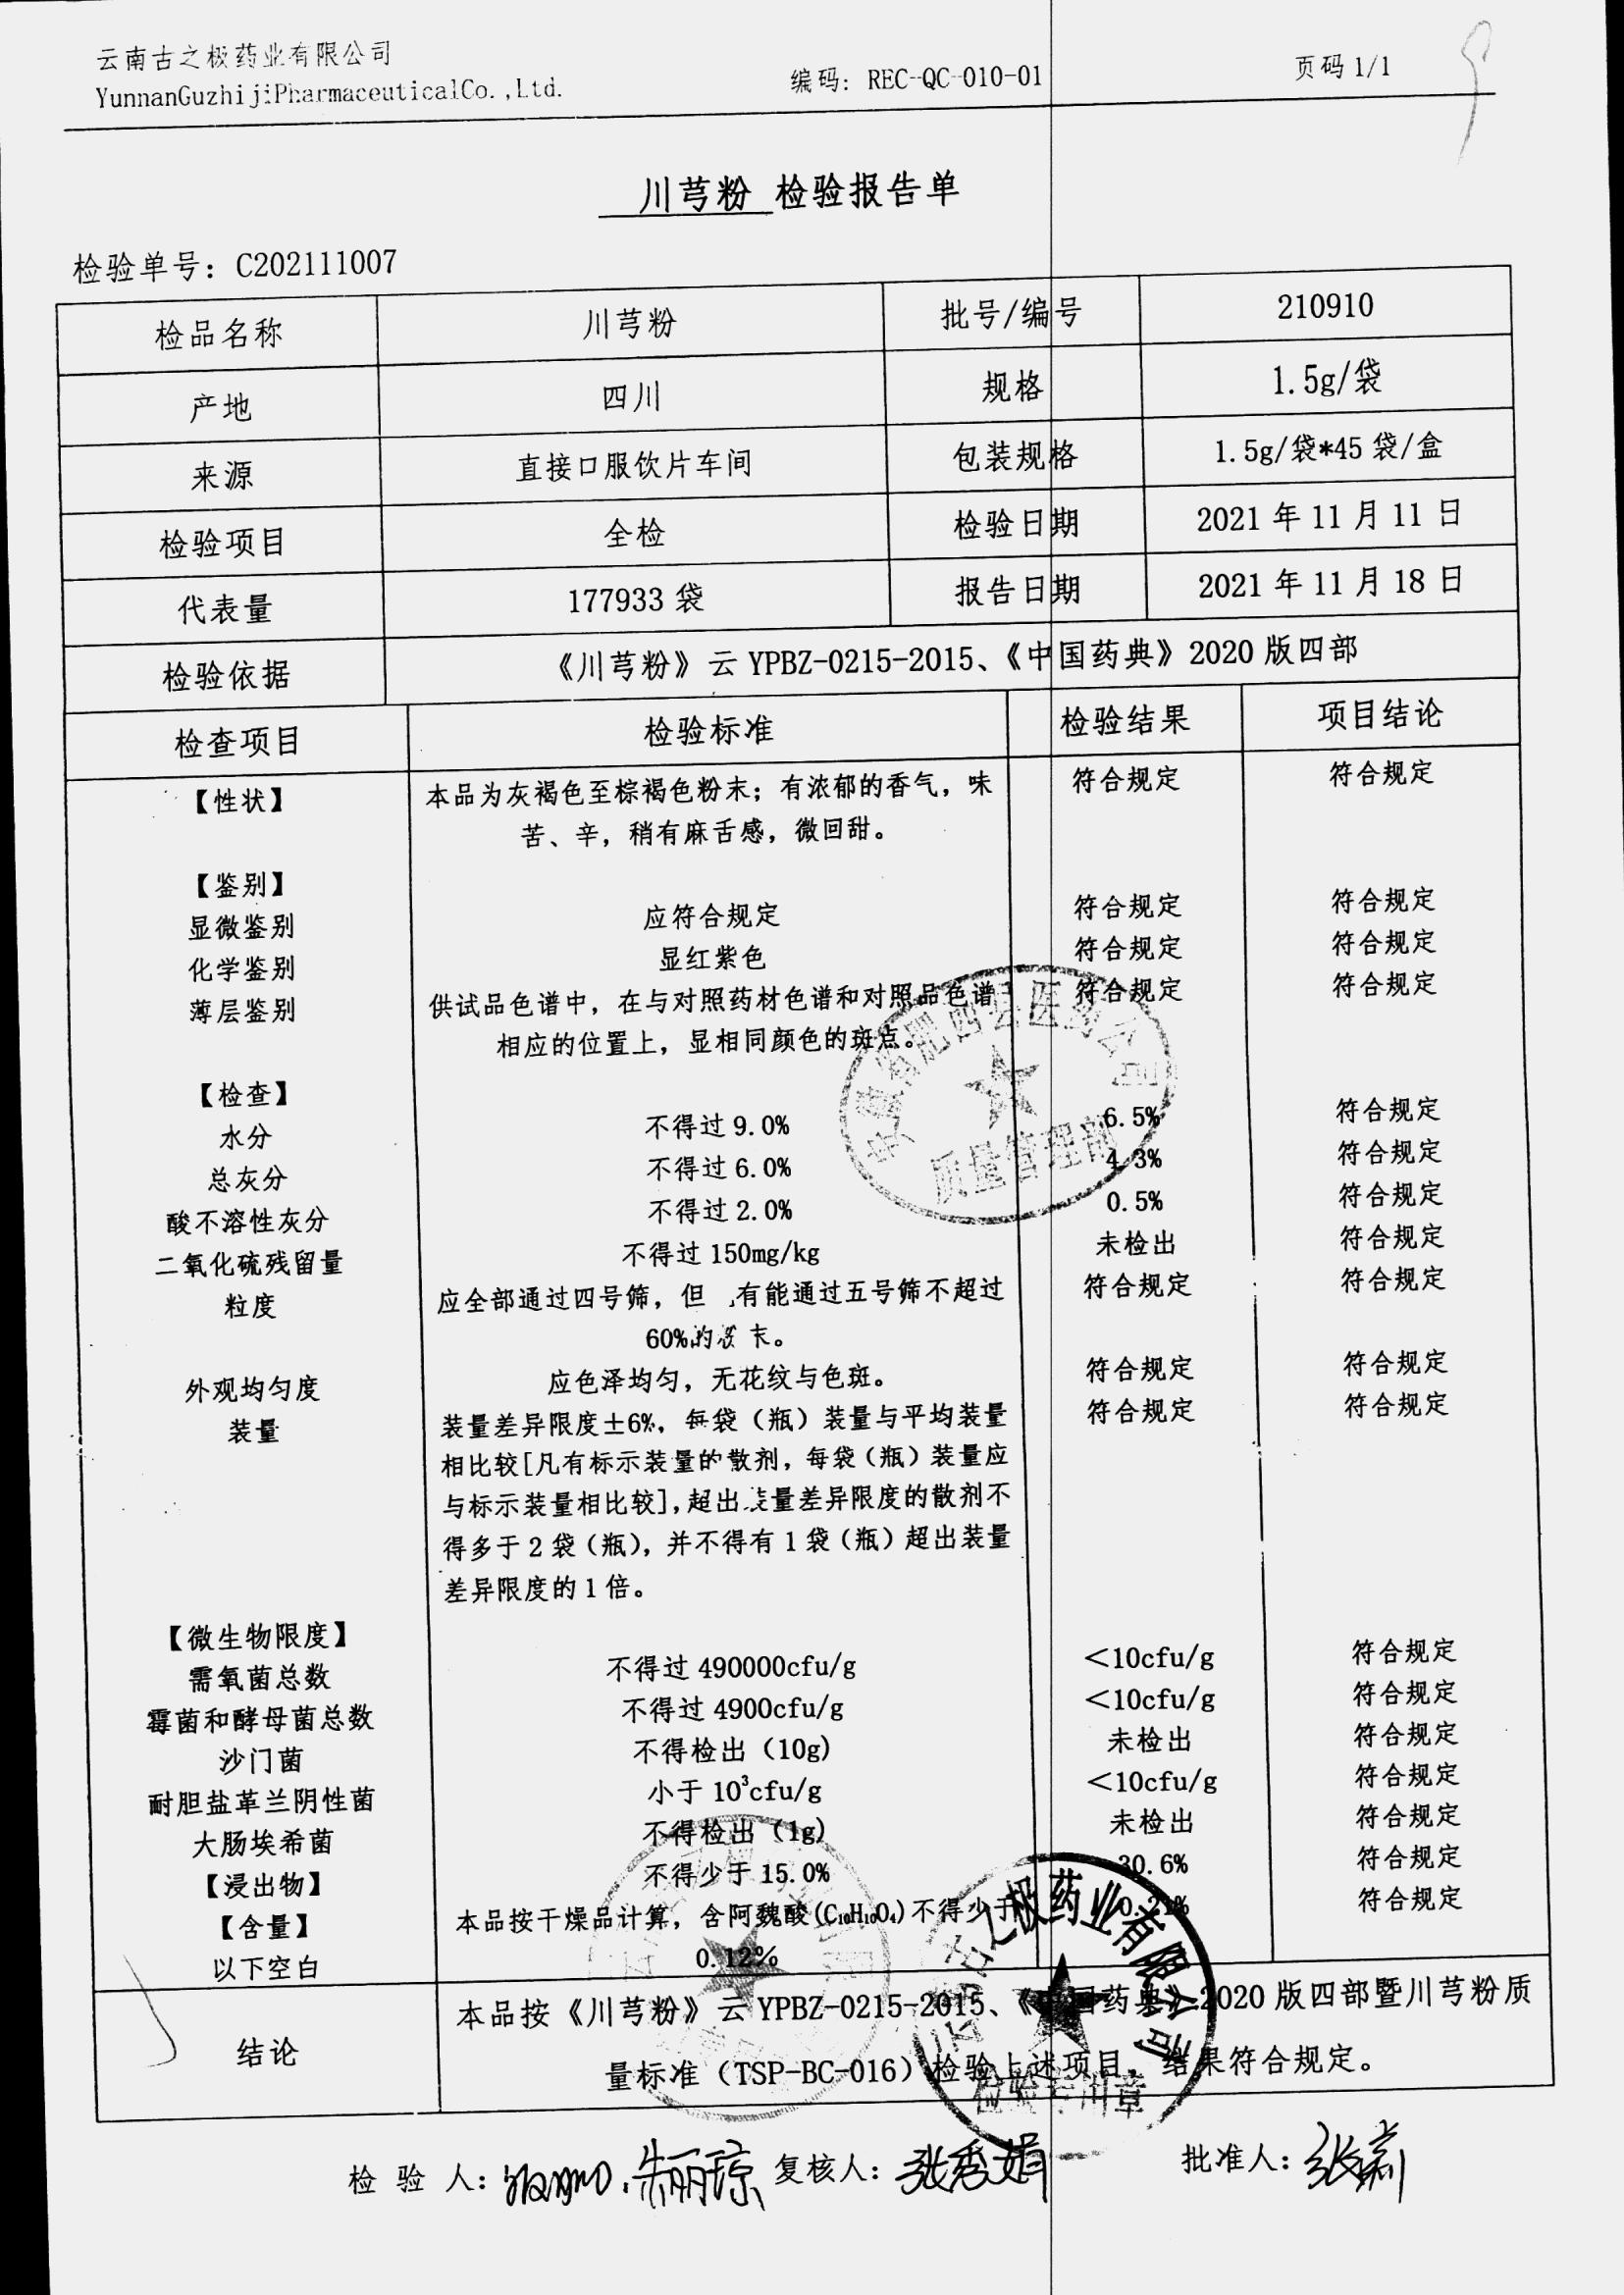 云南古之极药业有限公司
YunnanGuzhijiPharmaceuticalCo.,Ltd.
编码：REC-QC-010-01
页码 1/1
川芎粉 检验报告单
检验单号：C202111007
检品名称 川芎粉 批号/编号 210910
产地 四川 规格 1.5g/袋
来源 直接口服饮片车间 包装规格 1.5g/袋*45 袋/盒
检验项目 全检 检验日期 2021 年 11 月 11 日
代表量 177933 袋 报告日期 2021 年 11 月 18 日
检验依据 《川芎粉》云 YPBZ-0215-2015、《中国药典》2020 版四部
检查项目 检验标准 检验结果 项目结论
【性状】 本品为灰褐色至棕褐色粉末；有浓郁的香气，味 符合规定 符合规定
苦、辛，稍有麻舌感，微回甜。
【鉴别】
显微鉴别 应符合规定 符合规定 符合规定
化学鉴别 显红紫色 符合规定 符合规定
薄层鉴别 供试品色谱中，在与对照药材色谱和对照品色谱 符合规定 符合规定
相应的位置上，显相同颜色的斑点。
【检查】
水分 不得过 9.0% 6.5% 符合规定
总灰分 不得过 6.0% 4.3% 符合规定
酸不溶性灰分 不得过 2.0% 0.5% 符合规定
二氧化硫残留量 不得过 150mg/kg 未检出 符合规定
粒度 应全部通过四号筛，但 有能通过五号筛不超过 符合规定 符合规定
60%的 末。
外观均匀度 应色泽均匀，无花纹与色斑。 符合规定 符合规定
装量 装量差异限度±6%，每袋（瓶）装量与平均装量 符合规定 符合规定
相比较[凡有标示装量的散剂，每袋（瓶）装量应
与标示装量相比较]，超出装量差异限度的散剂不
得多于 2 袋（瓶），并不得有 1 袋（瓶）超出装量
差异限度的 1 倍。
【微生物限度】
需氧菌总数 不得过 490000cfu/g ＜10cfu/g 符合规定
霉菌和酵母菌总数 不得过 4900cfu/g ＜10cfu/g 符合规定
沙门菌 不得检出（10g） 未检出 符合规定
耐胆盐革兰阴性菌 小于 10³cfu/g ＜10cfu/g 符合规定
大肠埃希菌 不得检出（1g） 未检出 符合规定
【浸出物】 不得少于 15.0% 30.6% 符合规定
【含量】 本品按干燥品计算，含阿魏酸(C₁₀H₁₀O₄)不得少于 0.21% 符合规定
以下空白 0.12%
结论 本品按《川芎粉》云 YPBZ-0215-2015、《中国药典》2020 版四部暨川芎粉质
量标准（TSP-BC-016）检验上述项目，结果符合规定。
安徽省肥西县医药公司
质量管理部
云南古之极药业有限公司
检验专用章
检 验 人： 朱丽琼 复核人：张秀娟 批准人：